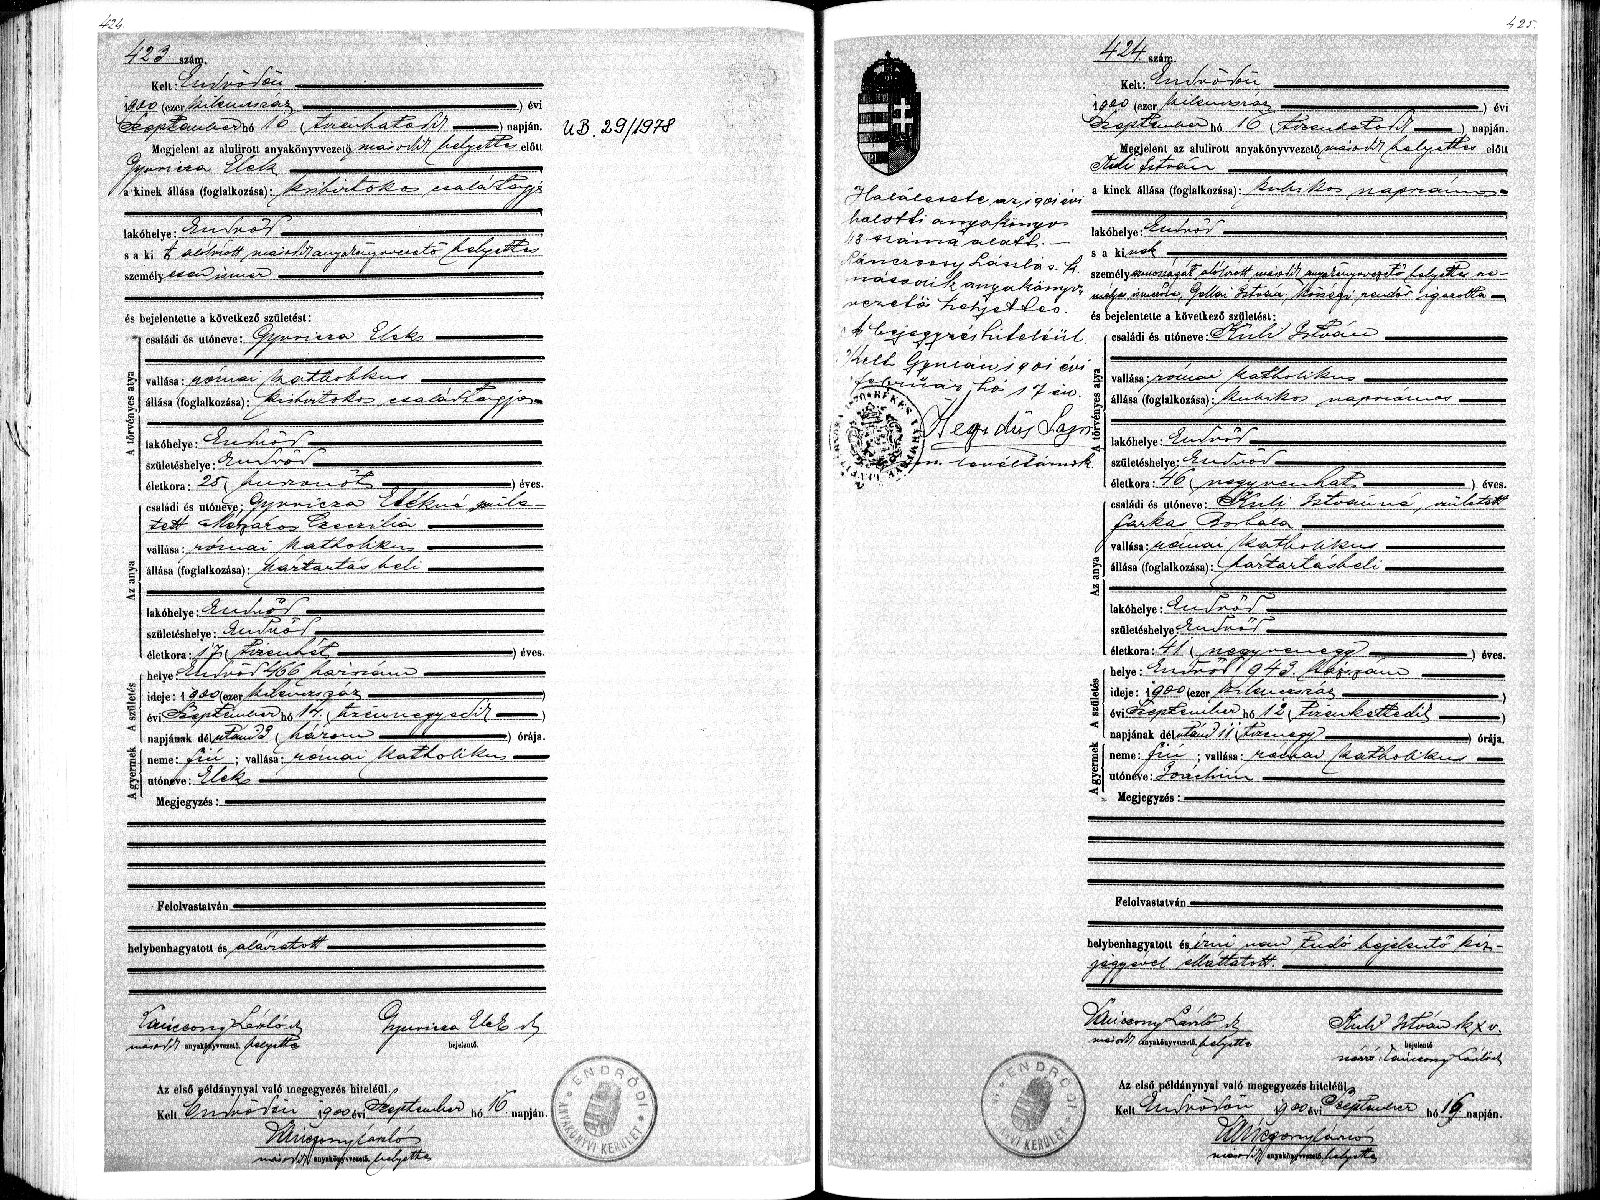 424
423 szám.
Kelt: Endrődön
1900 (ezer kilencszáz) évi
Szeptember hó 16 (tizenhatodik) napján.
Megjelent az alulirott anyakönyvvezető második helyettes előtt
Gyuricza Elek
a kinek állása (foglalkozása): kisbirtokos családtagja
lakóhelye: Endrőd
s a ki t alólirott, második anyakönyvvezető helyettes
személyesen ismer
és bejelentette a következő születést:
A törvényes atya
családi és utóneve: Gyuricza Elek
vallása: római katholikus
állása (foglalkozása): kisbirtokos családtagja
lakóhelye: Endrőd
születéshelye: Endrőd
életkora: 25 (huszonöt) éves.
Az anya
családi és utóneve: Gyuricza Elekné szüle-
tett Mészáros Czeczilia
vallása: római katholikus
állása (foglalkozása): háztartásbeli
lakóhelye: Endrőd
születéshelye: Endrőd
életkora: 17 (tizenhét) éves.
A születés
helye: Endrőd 466 házszám
ideje: 1900 (ezer kilencszáz)
évi Szeptember hó 14. (tizennegyedik)
napjának délután 3 (három) órája.
A gyermek
neme: fiú; vallása: római katholikus
utóneve: Elek
Megjegyzés:
Felolvastatván
helybenhagyatott és aláiratott
Lánczony László
második anyakönyvvezető. helyettes
Gyuricza Elek
bejelentő.
Az első példánynyal való megegyezés hiteléül.
Kelt Endrődön 1900 évi Szeptember hó 16 napján.
Lánczony László
második anyakönyvvezető. helyettes
ENDRŐDI
ANYAKÖNYVI KERÜLET
UB. 29/1978
425.
424. szám.
Kelt: Endrődön
1900 (ezer kilencszáz) évi
Szeptember hó 16 (tizenhatodik) napján.
Megjelent az alulirott anyakönyvvezető második helyettes előtt
Kuli István
a kinek állása (foglalkozása): kubikos napszámos
lakóhelye: Endrőd
s a kinek
személyazonosságát alólirott második anyakönyvvezető helyettes sze-
mélyes ismerőse, Gellai István, községi rendőr igazolta
és bejelentette a következő születést:
A törvényes atya
családi és utóneve: Kuli István
vallása: római katholikus
állása (foglalkozása): kubikos napszámos
lakóhelye: Endrőd
születéshelye: Endrőd
életkora: 46 (negyvenhat) éves.
Az anya
családi és utóneve: Kuli Istvánné, született
Farkas Borbála
vallása: római katholikus
állása (foglalkozása): háztartásbeli
lakóhelye: Endrőd
születéshelye: Endrőd
életkora: 41 (negyvenegy) éves.
A születés
helye: Endrőd 1943. házszám
ideje: 1900 (ezer kilencszáz)
évi Szeptember hó 12 (tizenkettedik)
napjának délután 11 (tizenegy) órája.
A gyermek
neme: fiú; vallása: római katholikus
utóneve: Joáchim
Megjegyzés:
Felolvastatván
helybenhagyatott és írni nem tudó bejelentő kéz-
jegyével elláttatott.
Lánczony László
második anyakönyvvezető. helyettes
Kuli István k x v.
bejelentő
névíró: Lánczony László
Az első példánynyal való megegyezés hiteléül.
Kelt Endrődön 1900 évi Szeptember hó 16 napján.
Lánczony László
második anyakönyvvezető. helyettes
ENDRŐDI
ANYAKÖNYVI KERÜLET
Halálesete az 1901 évi
halotti anyakönyv
43 száma alatt. —
Lánczony László s. k.
második anyakönyv-
vezető helyettes.
A bejegyzés hiteléül
Kelt Gyulán 1901 évi
február hó 17 én.
Hegedűs Lajos
levéltárnok